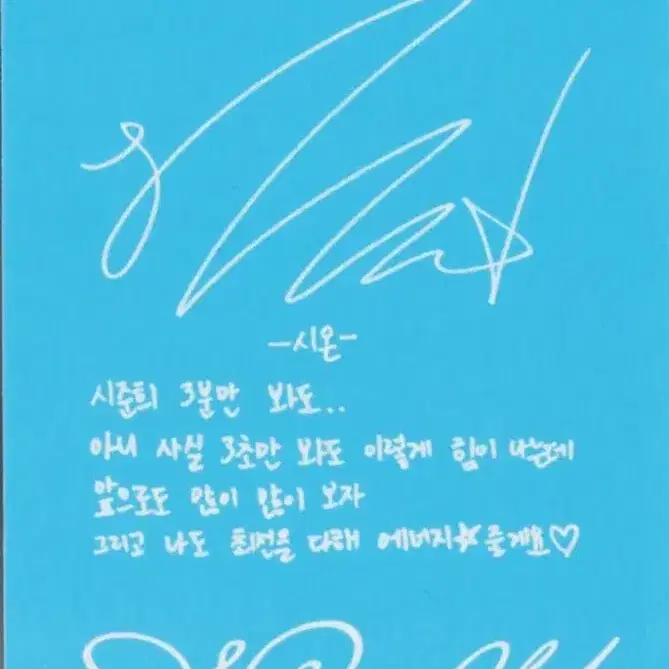 -시온-
시준희 3분만 봐도..
아니 사실 3초만 봐도 이렇게 힘이 나는데
앞으로도 많이 많이 보자
그리고 나도 최선을 다해 에너지☆줄게요♡